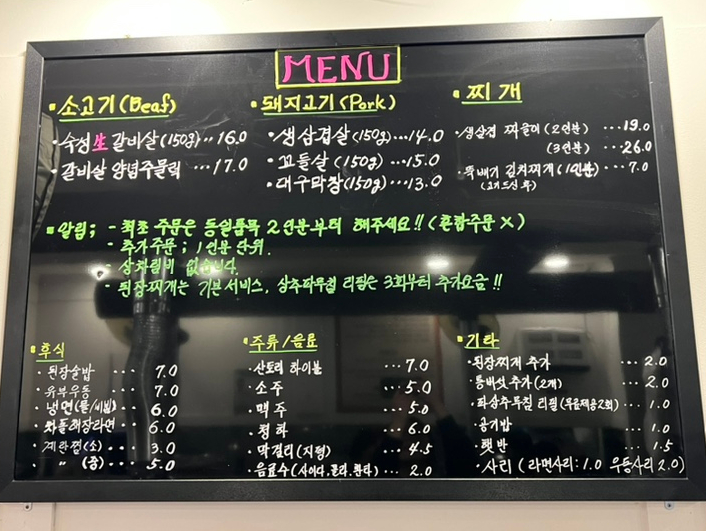 MENU
소고기(Beaf)
숙성生갈비살(150g)··16.0
갈비살 양념주물럭 ···17.0
돼지고기(Pork)
생삼겹살(150g)···14.0
꼬들살(150g)···15.0
대구막창(150g)···13.0
찌개
생삼겹 짜글이(2인분) ···19.0
(3인분) ···26.0
뚝배기 김치찌개(1인분)···7.0
(고기드신 후)
알림; - 최초 주문은 동일품목 2인분부터 해주세요!! (혼합주문 X)
- 추가주문; 1인분 단위.
- 상차림비 없습니다.
- 된장찌개는 기본서비스, 상추파무침 리필은 3회부터 추가요금!!
후식
된장술밥 ··· 7.0
유부우동 ··· 7.0
냉면(물/비빔) ··· 6.0
차돌해장라면 ··· 6.0
계란찜(소) ··· 3.0
" (중) ··· 5.0
주류/음료
산토리 하이볼 ··· 7.0
소주 ··· 5.0
맥주 ··· 5.0
청하 ··· 6.0
막걸리(지평) ··· 4.5
음료수(사이다,콜라,환타) ··· 2.0
기타
된장찌개 추가 ··· 2.0
통버섯추가(2개) ··· 2.0
파상추무침 리필(무료제공2회) ··· 1.0
공기밥 ··· 1.0
햇반 ··· 1.5
사리(라면사리:1.0 우동사리 2.0)